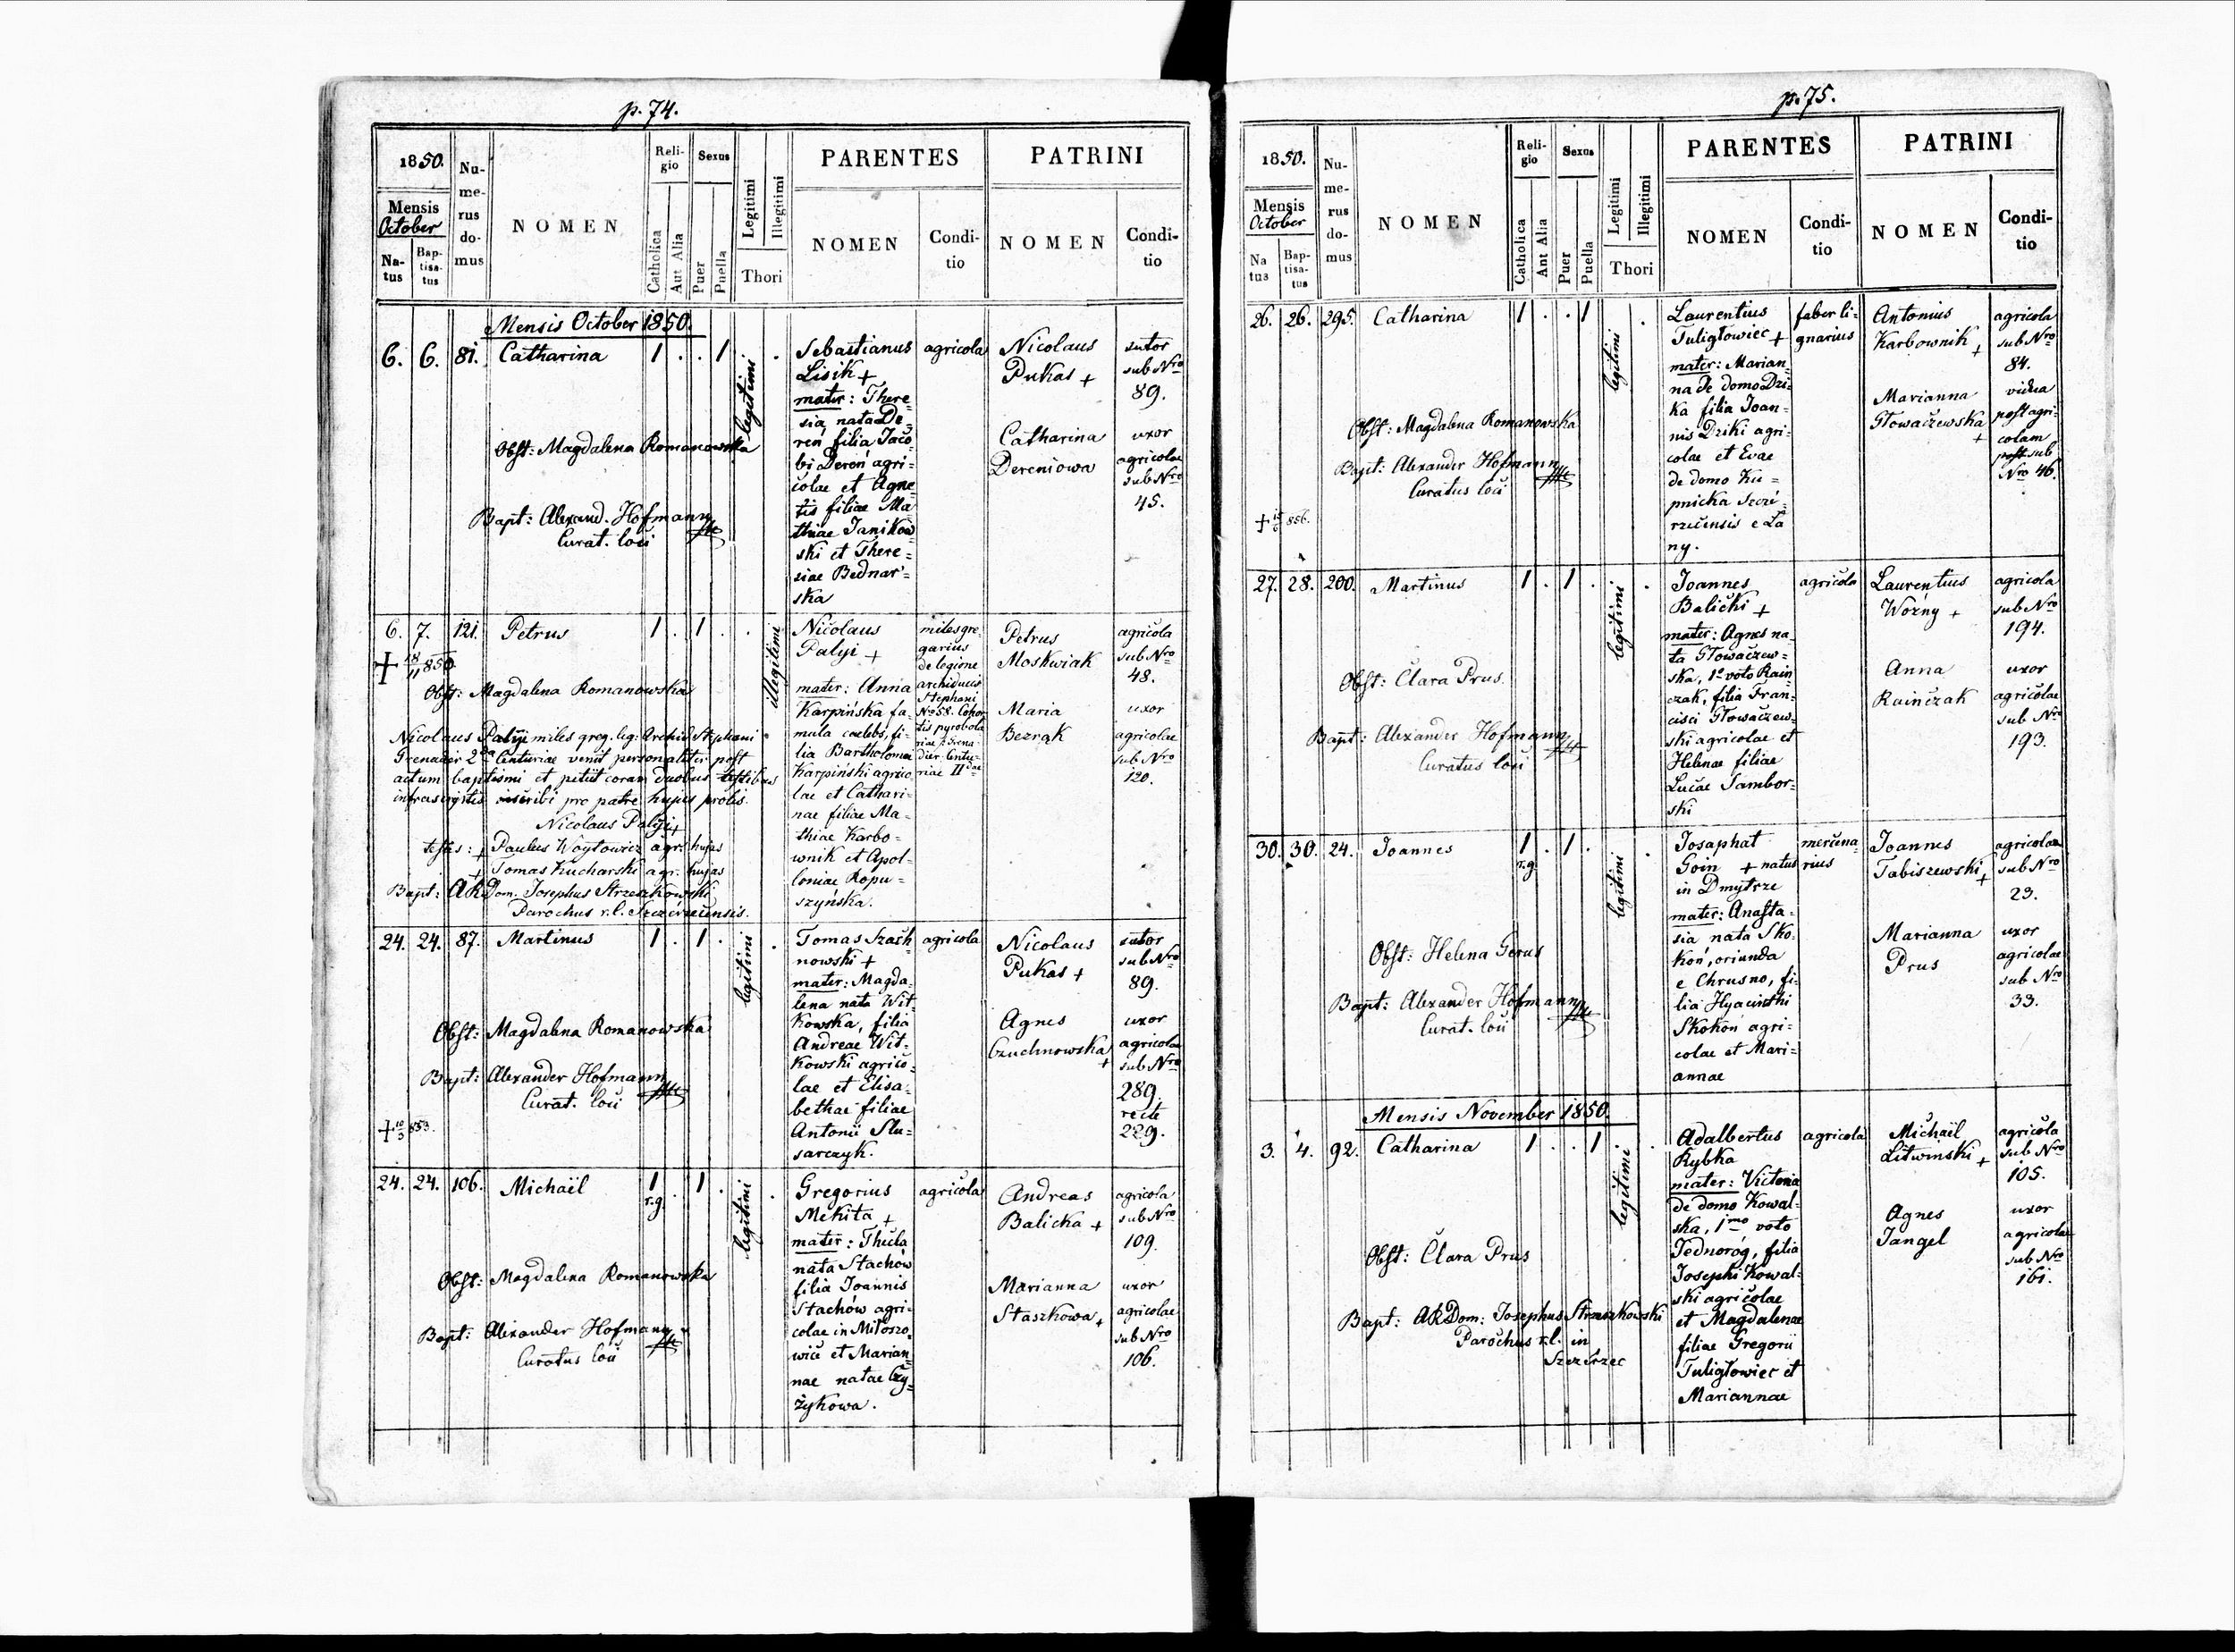 p. 74.
1850.
Mensis
October
Na-
tus
Bap-
tisa-
tus
Nu-
me-
rus
do-
mus
NOMEN
Reli-
gio
Catholica
Aut Alia
Sexus
Puer
Puella
Legitimi
Illegitimi
Thori
PARENTES
NOMEN
Condi-
tio
PATRINI
NOMEN
Condi-
tio
Mensis October 1850.
6. 6. 81. Catharina 1 . . 1 legitimi .
Obst: Magdalena Romanowska
Bapt: Alexand. Hofmann
Curat. loci
Sebastianus
Lisik +
mater: There=
sia, nata De=
reń, filia Jaco
bi Dereń agri=
colae et Agne=
tis filiae Ma=
thiae Janikow
ski et There=
siae Bednar=
ska
agricola
Nicolaus
Pukas +
sutor
sub Nro
89.
Catharina
Dereniowa
uxor
agricolae
sub Nro
45.
6. 7. 121. Petrus 1 . 1 . . illegitimi
+ 18/11 850
Obst: Magdalena Romanowska
Nicolaus Palyi miles greg. leg: Archid Stephani
Grenadier 2da Centuriae venit personaliter post
actum baptismi et petiit coram duobus testibus
infrascriptis inscribi pro patre hujus prolis.
Nicolaus Palyi +
testes: + Paulus Woytowicz agr. hujas
+ Tomas Kucharski agr. hujas
Bapt: ARDom. Josephus Strzeszkowski
Parochus r.l. Szczerzecensis.
Nicolaus
Palyi +
mater: Anna
Karpińska fa=
mula caelebs, fi=
lia Bartholomaei
Karpiński agrico
lae et Cathari=
nae filiae Ma=
thiae Karbo=
wnik et Apol=
loniae Ropu=
szyńska.
miles gre=
garius
de legione
archiducis
Stephani
No 58. Cohor
tis pyrobola
riae Grena
dier Centu=
riae IIdae
Petrus
Moskwiak
agricola
sub Nro
48.
Maria
Bezrąk
uxor
agricolae
sub Nro
120.
24. 24. 87. Martinus 1 . 1 . legitimi .
Obst: Magdalena Romanowska
Bapt: Alexander Hofmann
Curat. loci
+ 10/3 853.
Tomas Szach
nowski +
mater: Magda=
lena nata Wit=
kowska, filia
Andreae Wit=
kowski agrico=
lae et Elisa=
bethae filiae
Antonii Slu=
sarczyk.
agricola
Nicolaus
Pukas +
sutor
sub Nro
89.
Agnes
Czuchnowska
+
uxor
agricolae
sub Nro
289.
recte
229.
24. 24. 106. Michaël 1 . 1 . legitimi .
r.g.
Obst: Magdalena Romanowska
Bapt: Alexander Hofmann
Curatus loci
Gregorius
Mekita +
mater: Thecla
nata Stachów
filia Joannis
Stachów agri=
colae in Miłoszo
wice et Marian=
nae natae Czy=
żykowa.
agricola
Andreas
Balicka +
agricola
sub Nro
109.
Marianna
Staszkowa +
uxor
agricolae
sub Nro
106.
p. 75.
1850.
Mensis
October
Na
tus
Bap-
tisa-
tus
Nu-
me-
rus
do-
mus
NOMEN
Reli-
gio
Catholica
Ant Alia
Sexus
Puer
Puella
Legitimi
Illegitimi
Thori
PARENTES
NOMEN
Condi-
tio
PATRINI
NOMEN
Condi-
tio
26. 26. 295. Catharina 1 . . 1 legitimi .
Obst: Magdalena Romanowska
Bapt: Alexander Hofmann
Curatus loci
Laurentius
Tuligłowiec +
mater: Marian=
na de domo Dzi=
ka filia Joan=
nis Dziki agri=
colae et Evae
de domo Ku=
pnicka Szczé=
rzecensis e Ła
ny.
faber li=
gnarius
Antonius
Karbownik +
agricola
sub Nro
84.
Marianna
Głowaczewska
+
vidua
post agri=
colam
sub
Nro 46.
27. 28. 200. Martinus 1 . 1 . legitimi .
Obst: Clara Prus.
Bapt: Alexander Hofmann
Curatus loci
Joannes
Balicki +
mater: Agnes na=
ta Głowaczew=
ska, 1o voto Rain
czak, filia Fran=
cisci Głowaczew=
ski agricolae et
Helenae filiae
Lucae Sambor=
ski
agricola
Laurentius
Woźny +
agricola
sub Nro
194.
Anna
Rainczak
uxor
agricolae
sub Nro
193.
30. 30. 24. Joannes 1 . 1 . legitimi .
r.g.
Obst: Helena Gerus
Bapt: Alexander Hofmann
Curat. loci
Josaphat
Goin + natus
in Dmytrze
mater: Anasta=
sia nata Sko=
koń, oriunda
e Chrusno, fi=
lia Hyacinthi
Skokoń agri=
colae et Mari=
annae
mercena=
rius
Joannes
Tabiszewski +
agricola
sub Nro
23.
Marianna
Prus
uxor
agricolae
sub Nro
33.
Mensis November 1850.
3. 4. 92. Catharina 1 . . 1 legitimi .
Obst: Clara Prus
Bapt: ARDom: Josephus Strzeszkowski
Parochus r.l. in
Szczerzec
Adalbertus
Rybka
mater: Victoria
de domo Kowal=
ska, 1mo voto
Jednoróg, filia
Josephi Kowal=
ski agricolae
et Magdalenae
filiae Gregorii
Tuligłowiec et
Mariannae
agricola
Michaël
Litwinski +
agricola
sub Nro
105.
Agnes
Jangel
uxor
agricolae
sub Nro
161.